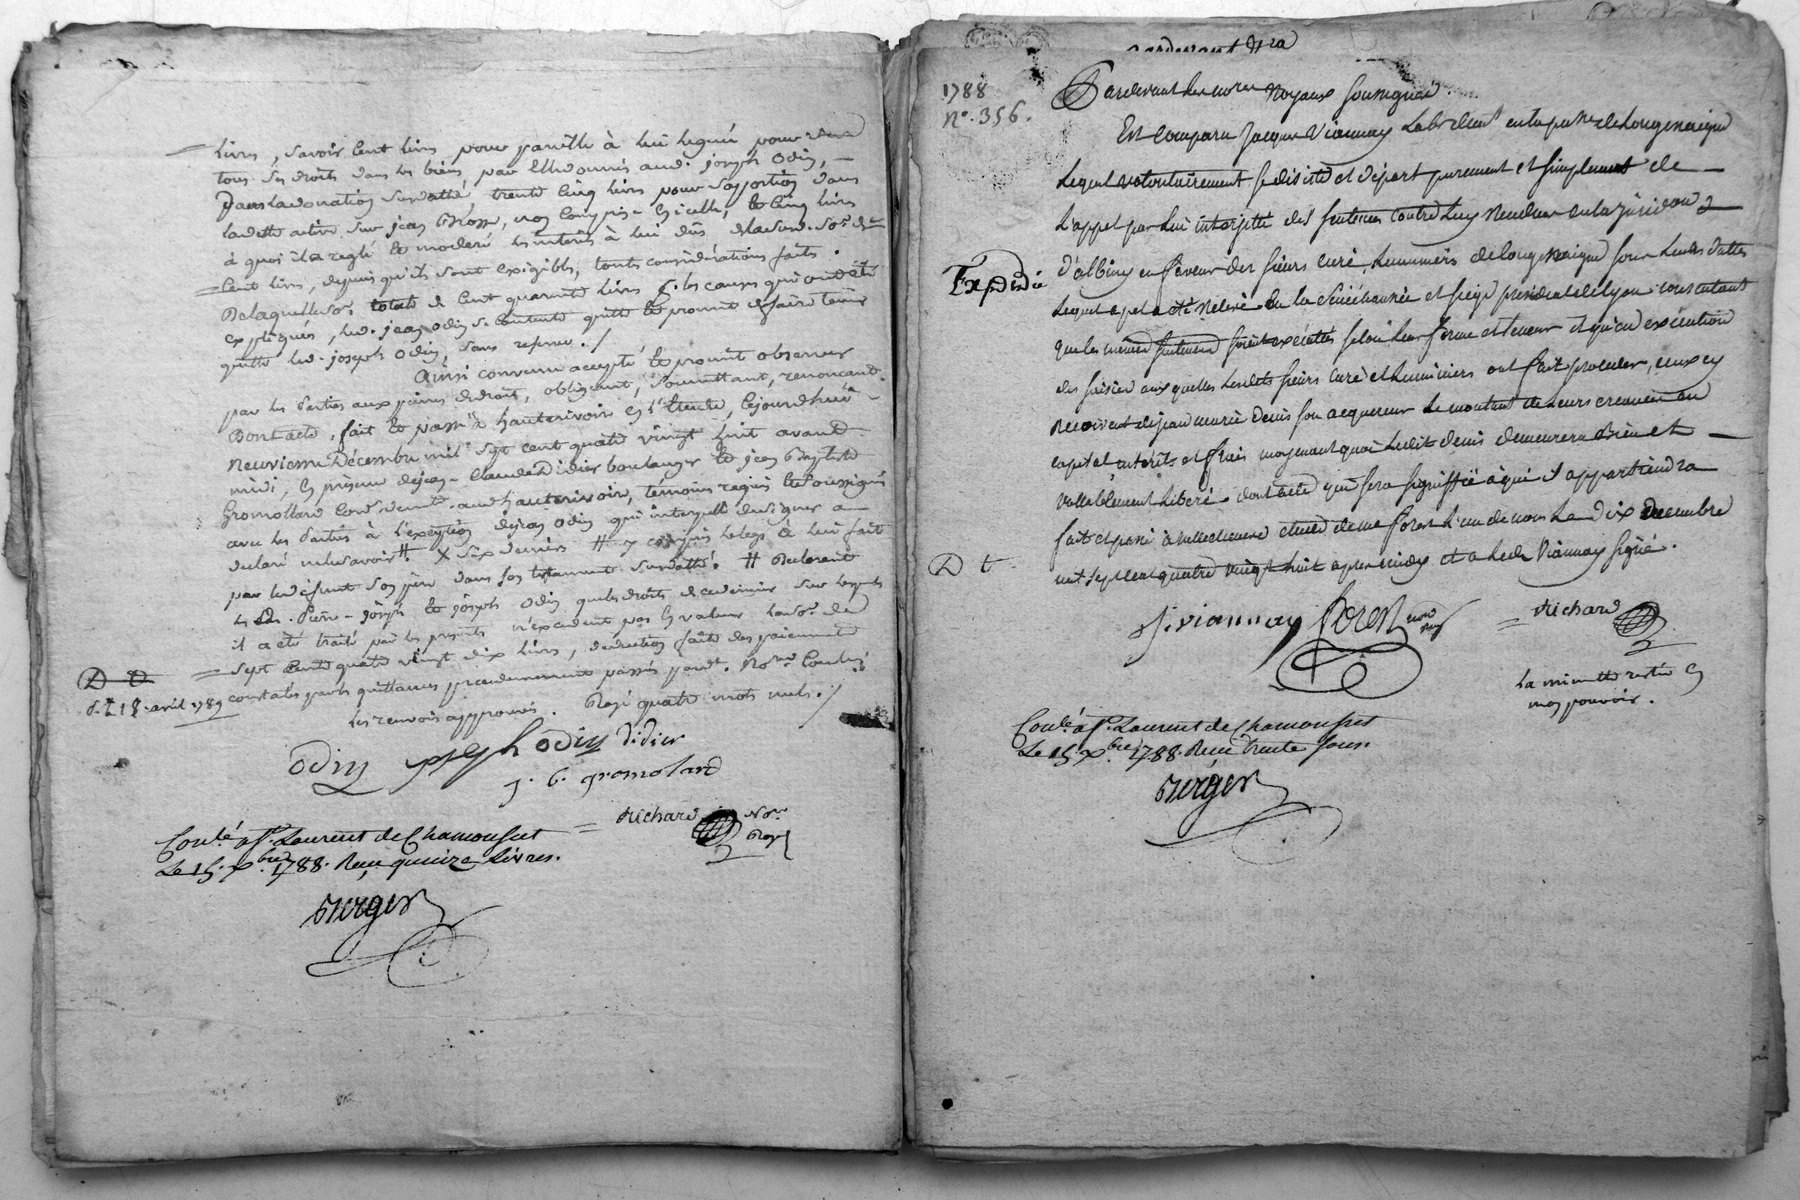 livres, savoir cent livres pour pareille à lui léguée pour
tous ses droits dans les biens, par led. joseph odin,
dans la donation susdatte, trente cinq livres pour sa portion dans
la dette active sur jean non compris icelle, cinq livres
à quoi il a reglé et moderé les interêts à lui dûs
cent livres, depuis qu'ils sont exigibles, touttes considérations faites.
De laquelle so. totale de cent quarante livres les causes qui ont été
expliqués, led. jean odin se contente quitte et promet de faire tenir
quitte led. joseph odin, sans reprise./
Ainsi convenu accepté et promit observer
par les parties aux peines de droit, obligeant, soumettant, renonçant.
Dont acte, fait et passé à hauterivoir en l'étude, cejourd'hui
neuvieme Décembre mil sept cent quatre vingt huit avant
midi, en présence de jean-claude Didier boulanger et jean Baptiste
Gromollard aud. hauterivoir, temoins requis et soussignés
avec les parties à l'exception de jean odin qui interpellé de signer a
declaré ne le savoir # X six deniers # y compris le legs à lui fait
par led. défunt son père dans son testament susdatté. # Declarant
les Srs. Pierre-joseph et joseph odin que les droits sur lesquels
il a été traité par les présentes n'excedent pas en valeur la so. de
sept cents quatre vingt dix livres, deduction faite des paiements
constatés par les quittances precedemment passés pard.
D D
d. 18. avril 1789
Les renvois approuvés. Rayé quatre mots nuls./
odin joseph odin didier
j. b. gromolard
richard No.re Royal
Con.lé à St. Laurent de Chamousset
Le 15. Xbre 1788. Reçu quinze Livres.
Berger
1788
N°. 356.
Pardevant Les no.res Royaux soussignés
Est comparu Jacques Viannay Laboureur en la paroisse de Longessaigne
Lequel volontairement se désiste et départ purement et simplement de
L'appel par lui interjetté des sentences contre luy rendues en la jurisdon
d'albigny en faveur des sieurs curé, Luminiers de Longessaigne sous leurs dattes
Expédié
Lequel apel a été relevé en la Sénéchaussée et siège présidial de Lyon consentant
que les memes sentences soient exécutées selon leur forme et teneur et qu'en exécution
des saisies aux quelles lesdits sieurs curé et Luminiers ont fait proceder, ceux cy
recoivent de jean marie denis son acquereur le montant de leurs creances en
capital interêts et frais moyenant quoi ledit denis demeurera bien et
vallablement liberé. dont acte qui sera signiffié à qui il appartiendra
fait et passé à etude de me forest l'un de nous Le dix decembre
mil sept cent quatre vingt huit après midy et a ledit Viannay signé.
D t
J. viannay forest richard
La minutte restée en
mon pouvoir.
Con.lé à St. Laurent de Chamousset
Le 15 Xbre 1788. Reçu trente sous.
Berger